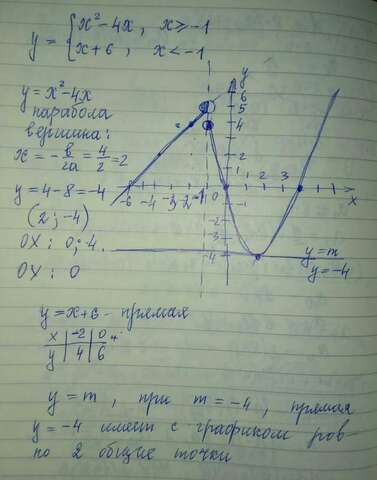 y = { x² - 4x, x ≥ -1
x + 6, x < -1
y = x² - 4x
парабола
вершина:
x = - b/2a = 4/2 = 2
y = 4 - 8 = -4
(2; -4)
OX: 0; 4.
OY: 0
y
6
5
4
2
1
-6 -4 -3 -2 -1 0 1 2 3 x
-1
-2
-3
-4
y = m
y = -4
y = x + 6 - прямая
x | -2 | 0
y | 4 | 6
y = m, при m = -4, прямая
y = -4 имеет с графиком ров-
но 2 общие точки